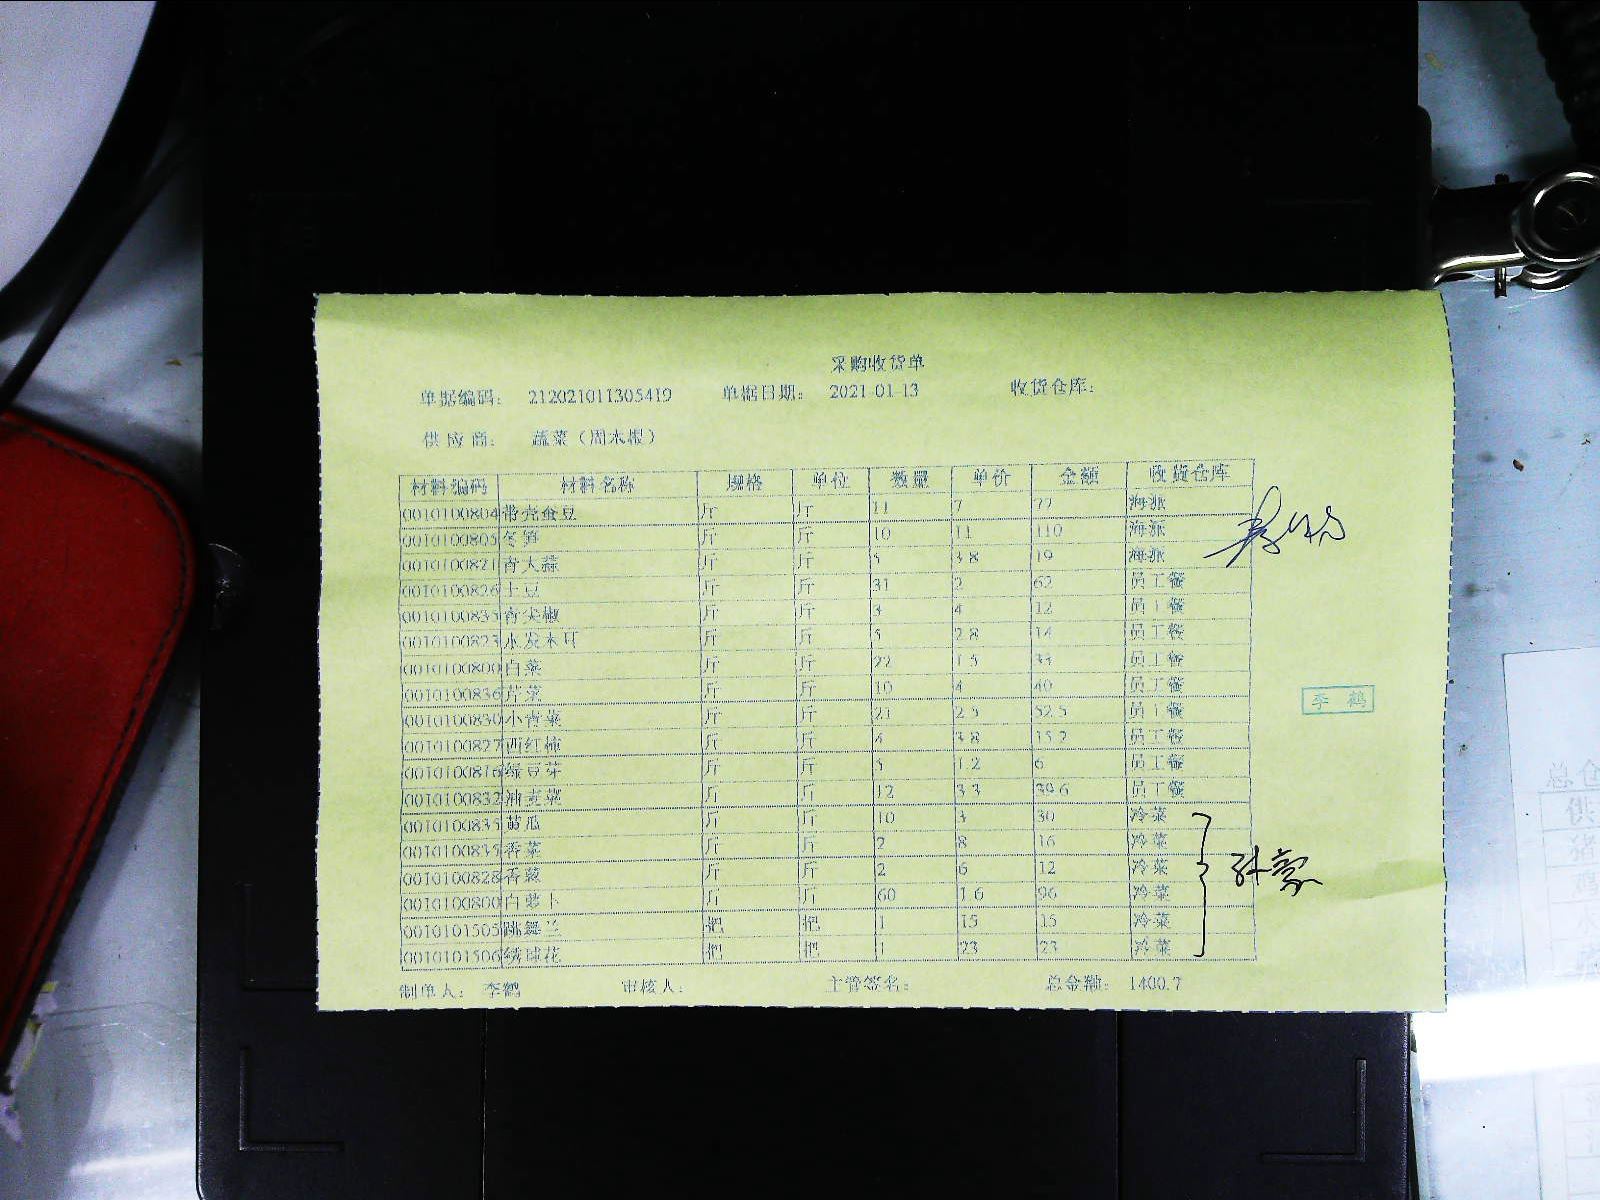 采购收货单
单据编码: 212021011305419 单据日期: 2021-01-13 收货仓库:
供应商: 蔬菜(周木根)
材料编码 材料名称 规格 单位 数量 单价 金额 收货仓库
0010100804 带壳蚕豆 斤 斤 11 7 77 海派
0010100805 冬笋 斤 斤 10 11 110 海派
0010100821 青大蒜 斤 斤 5 3.8 19 海派
0010100826 土豆 斤 斤 31 2 62 员工餐
0010100835 青尖椒 斤 斤 3 4 12 员工餐
0010100823 水发木耳 斤 斤 5 2.8 14 员工餐
0010100800 白菜 斤 斤 22 1.5 33 员工餐
0010100836 芹菜 斤 斤 10 4 40 员工餐
0010100830 小青菜 斤 斤 21 2.5 52.5 员工餐
0010100827 西红柿 斤 斤 4 3.8 15.2 员工餐
0010100816 绿豆芽 斤 斤 5 1.2 6 员工餐
0010100832 油麦菜 斤 斤 12 3.3 39.6 员工餐
0010100835 黄瓜 斤 斤 10 3 30 冷菜
0010100835 香菜 斤 斤 2 8 16 冷菜
0010100828 香葱 斤 斤 2 6 12 冷菜
0010100800 白萝卜 斤 斤 60 1.6 96 冷菜
0010101505 跳舞兰 把 把 1 15 15 冷菜
0010101506 绣球花 把 把 1 23 23 冷菜
李鹤
制单人: 李鹤 审核人: 主管签名: 总金额: 1400.7